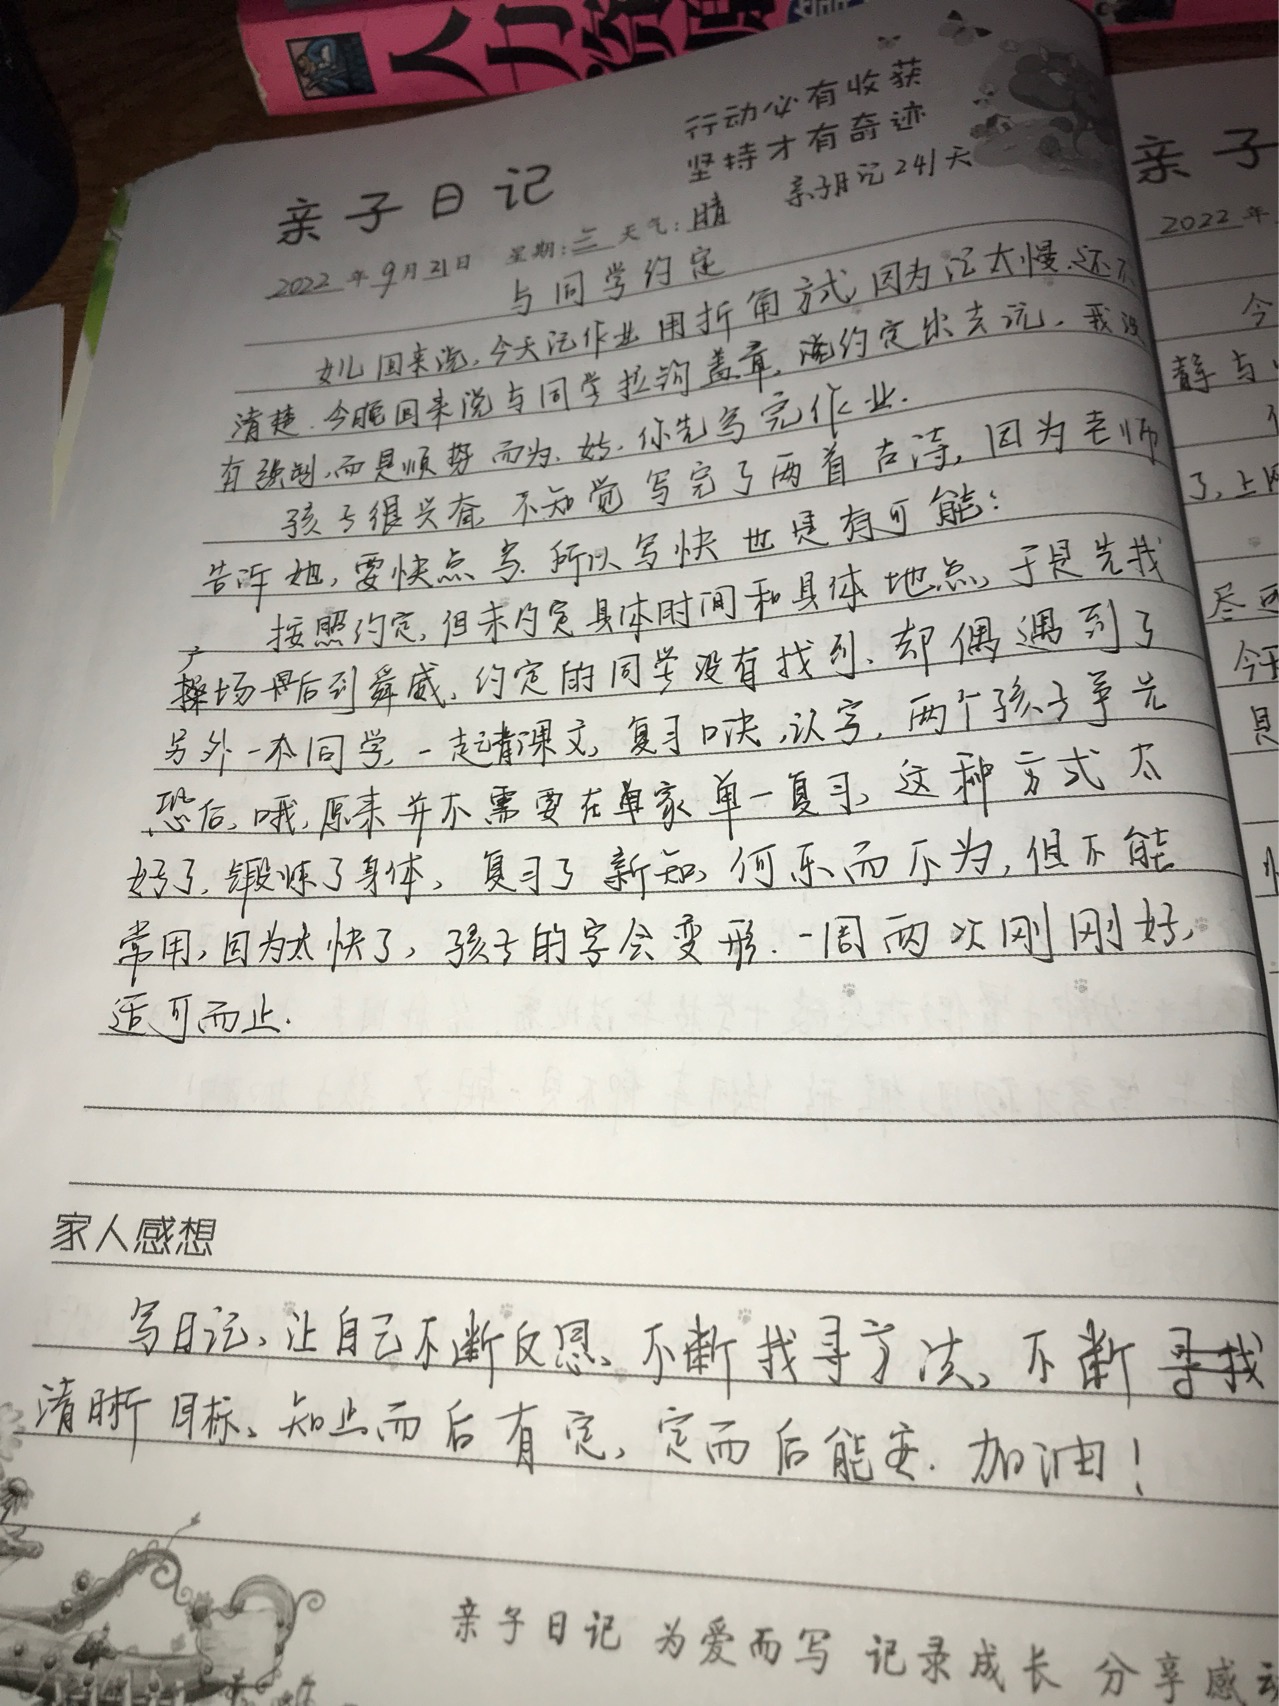 人力资源
行动必有收获
坚持才有奇迹
亲子日记
亲子日记241天
2022年9月21日 星期:三 天气:晴
与同学约定
女儿回来说,今天记作业用折角方式,因为记太慢,还不
清楚.今晚回来说与同学拉钩盖章,说约定出去玩.我没
有强制,而是顺势而为.好.你先写完作业.
孩子很兴奋,不知觉写完了两首古诗,因为老师
告诉她,要快点写.所以写快也是有可能:
按照约定,但未约定具体时间和具体地点,于是先找
广场再后到舜威,约定的同学没有找到,却偶遇到了
另外一个同学,一起读课文,复习口诀,认字,两个孩子争先
恐后,哦,原来并不需要在单家单一复习,这种方式太
好了,锻炼了身体,复习了新知,何乐而不为,但不能
常用,因为太快了,孩子的字会变形.一周两次刚刚好,
适可而止.
家人感想
写日记,让自己不断反思,不断找寻方法,不断寻找
清晰目标,知止而后有定,定而后能安.加油!
亲子日记 为爱而写 记录成长 分享感动
亲子
2022年
今
静与
了,上网
尽可
今天
是